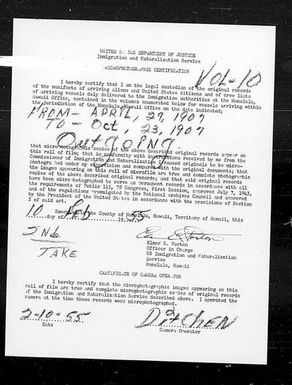 UNITED STATES DEPARTMENT OF JUSTICE
Immigration and Naturalization Service
MICROPHOTOGRAPHIC CERTIFICATION
VOL-10
I hereby certify that I am the legal custodian of the original records
of the manifests of arriving aliens and United States citizens and of crew lists
of arriving vessels duly delivered to the Immigration authorities at the Honolulu,
Hawaii Office, contained in the volumes enumerated below for vessels arriving within
the jurisdiction of the Honolulu, Hawaii Office on the date indicated:
FROM- APRIL, 27, 1907
TO- Oct, 23, 1907
that microphotographic copies of the above described original records appear on
this roll of film; that in conformity with instructions received by me from the
Commissioner of Immigration and Naturalization
images appearing on this roll of microfilm are true and complete photographic
copies of the above described original records; and that said original records
have been microphotographed to serve as permanent records in accordance with all
the requirements of Public 115, 78 Congress, First Session, approved July 7, 1943,
and of the regulations promulgated by the National Archives Council and approved by
the President of the United States in accordance with the provisions of Section
2 of said act.
County of Territory of Hawaii, this
10 day of Feb 1955
2nd
TAKE
Elmer E. Poston
Officer in Charge
US Immigration and Naturalization
Service
Honolulu, Hawaii
CERTIFICATE OF CAMERA OPERATOR
I hereby certify that the microphotographic images appearing on this
roll of film are true and complete microphotographic copies of original records
of the Immigration and Naturalization Service described above. I operated the
camera at the time these records were microphotographed.
2-10-55
Date
Camera Operator